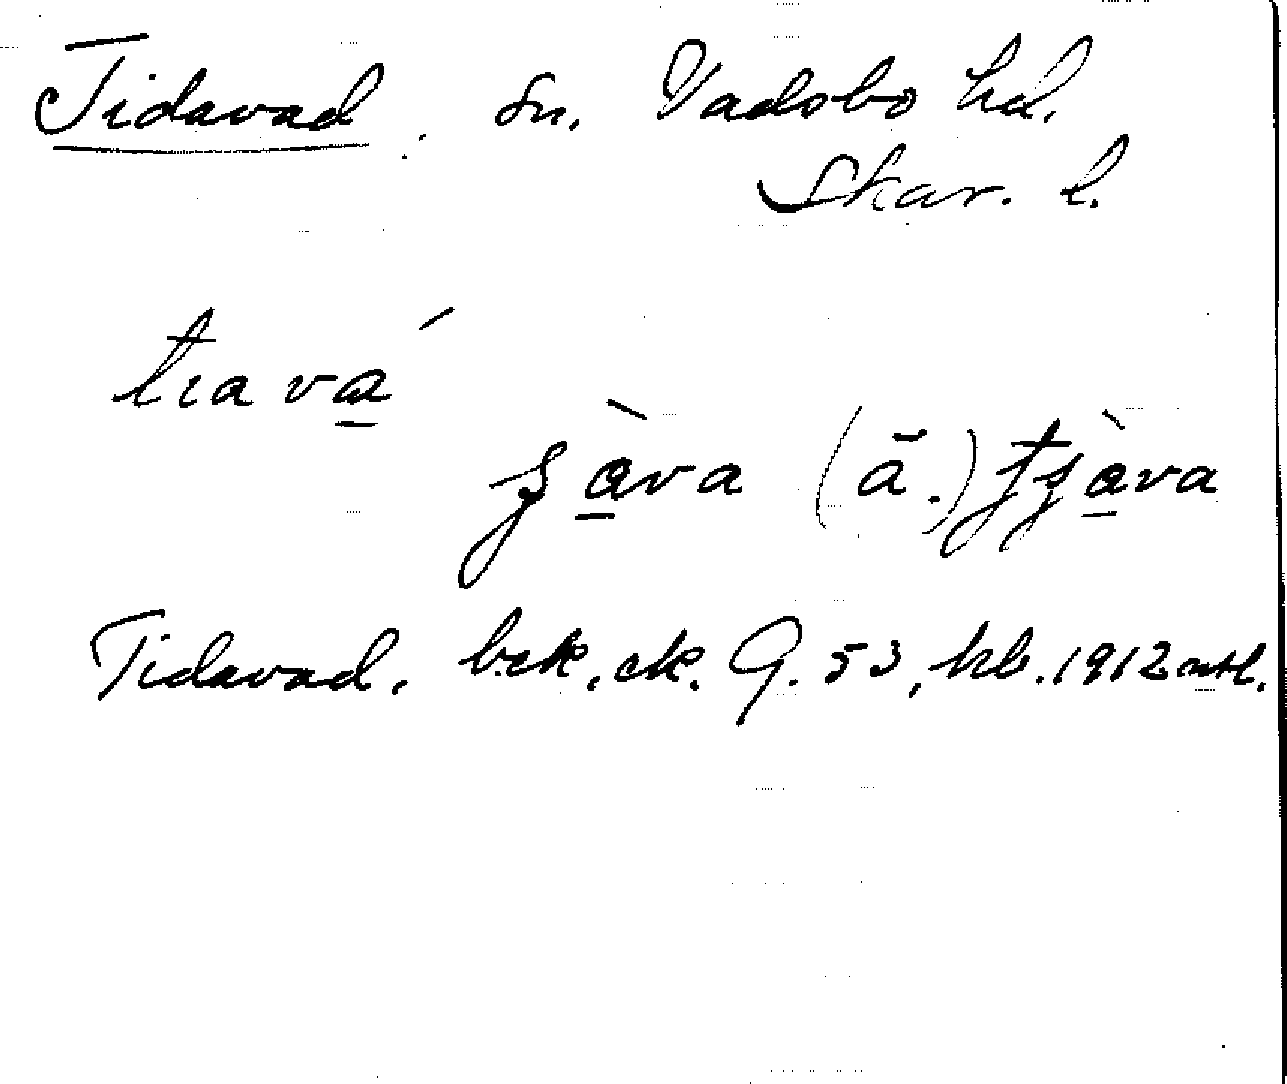 Tidavad. Sn. Vadsbo hd.
Skar. l.
tıavá
ʃàva (ä.) tʃàva
Tidavad. bek, ek. G. 53, kb. 1912 mtl.